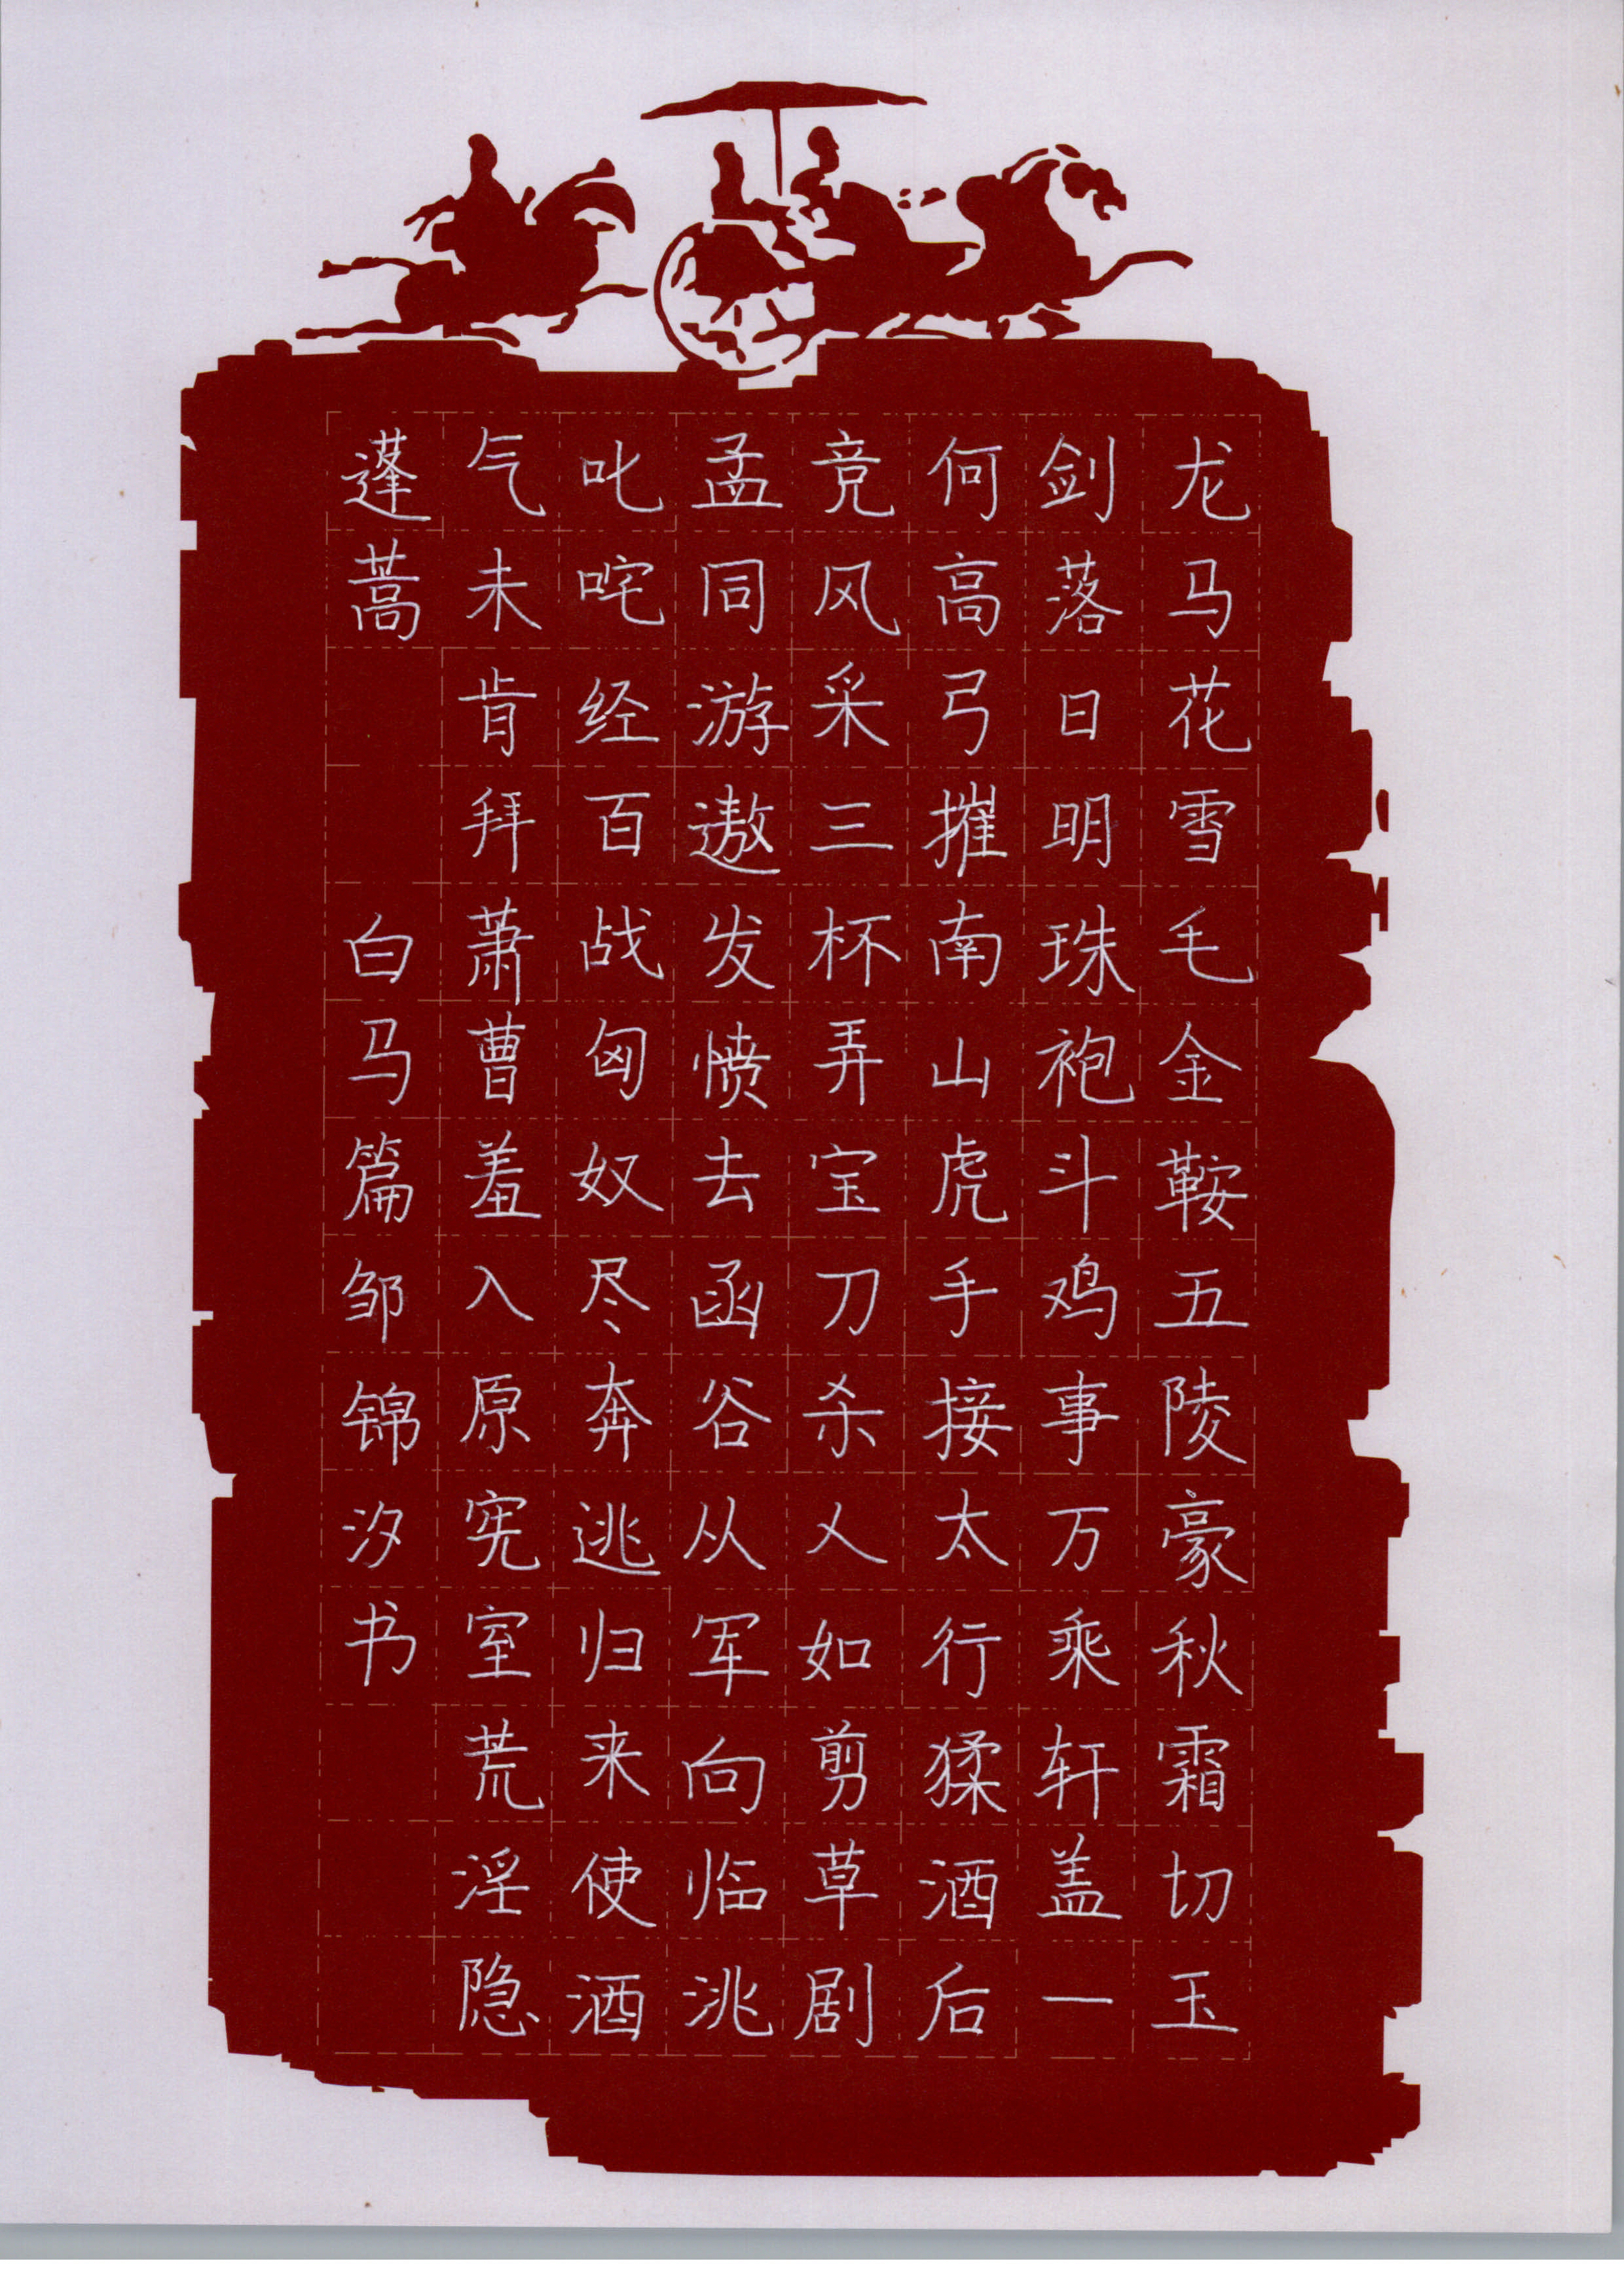 龙马花雪毛金鞍五陵豪秋霜切玉
剑落日明珠袍斗鸡事万乘轩盖一
何高弓摧南山虎手接太行猱酒后
竞风采三杯弄宝刀杀人如剪草剧
孟同游遨发愤去函谷从军向临洮
叱咤经百战匈奴尽奔逃归来使酒
气未肯拜萧曹羞入原宪室荒淫隐
蓬蒿 白马篇邹锦汐书